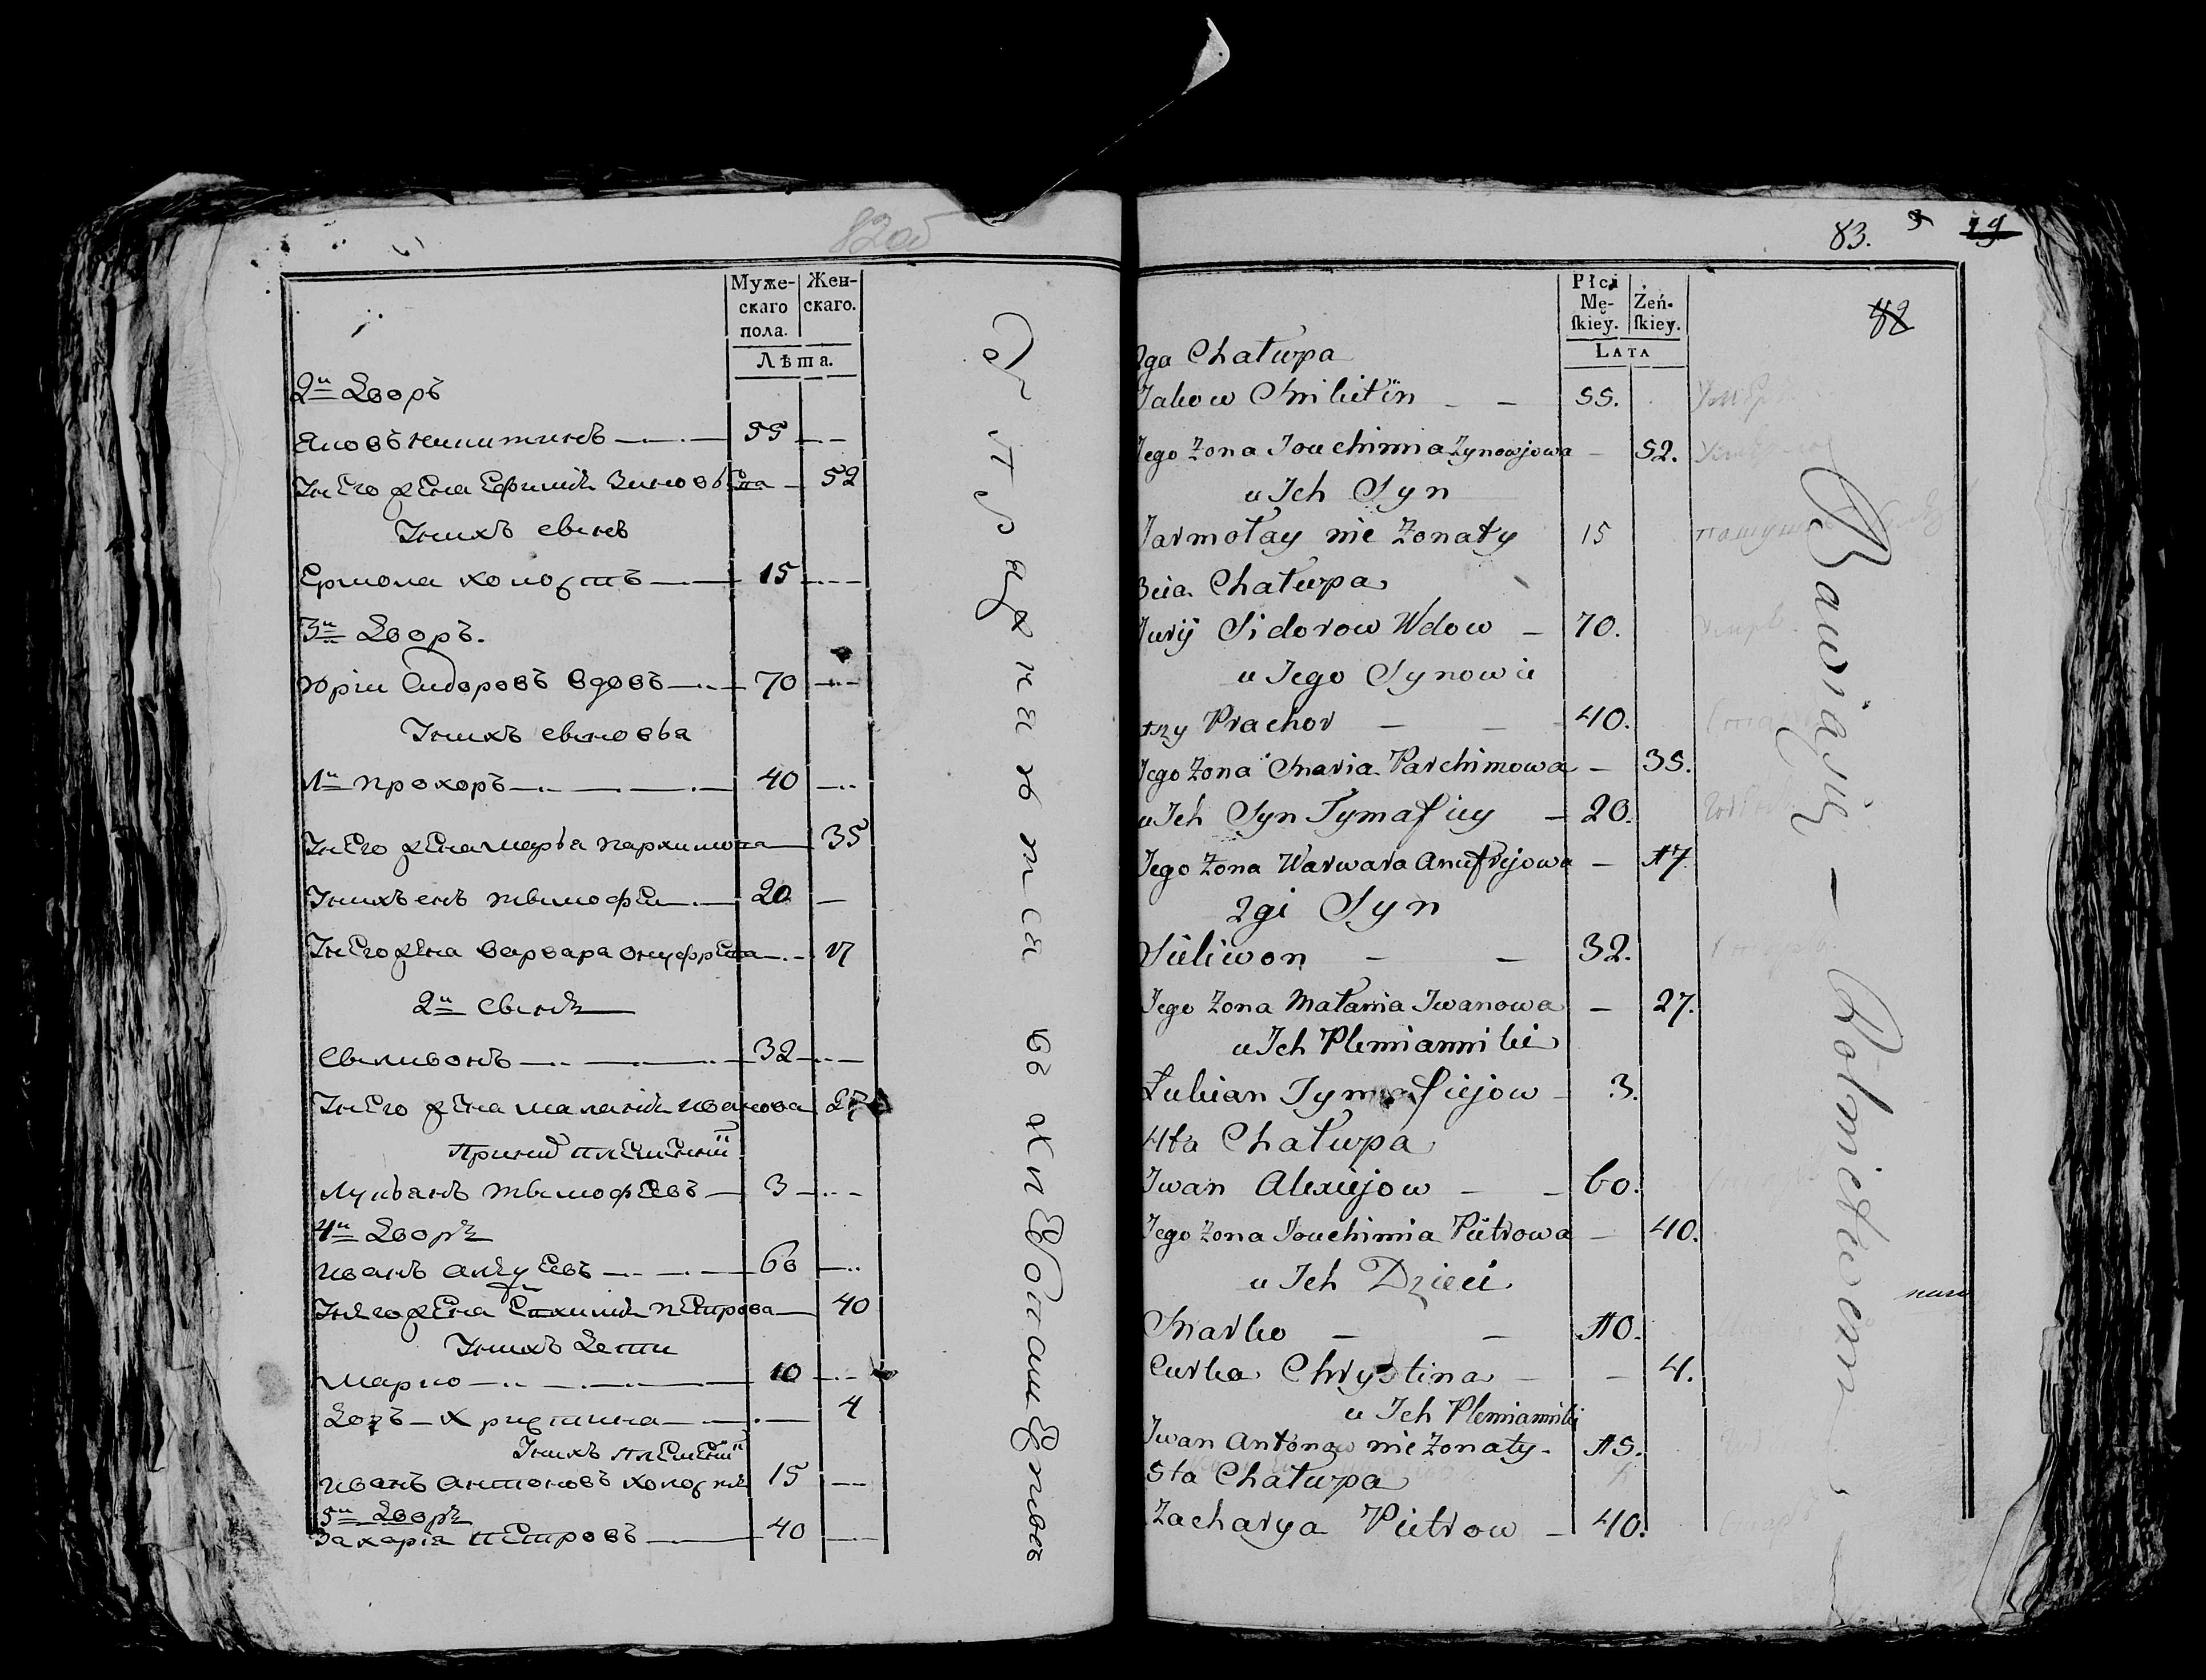 82об
Муже-
скаго
пола.
Жен-
скаго.
Лѣта.
2й Дворъ
Яковъ никитинъ 55
У него жена Ефимiя Зиновьева 52
У нихъ сынъ
Ермола холостъ 15
3й Дворъ.
Юрiи Сидоровъ вдовъ 70
У нихъ сыновья
1й прохоръ 40
У него жена марья пархимова 35
У нихъ снъ тымофеи 20
У него жена варвара онуфреева 17
2й сынъ
сыливонъ 32
У него жена маланiя иванова 27
При нихъ племенiй
лукьянъ тымофеевъ 3
4й Дворъ
иванъ 60
У него жена Ефхимiя петрова 40
У нихъ дети
марко 10
Дочь христина 4
У нихъ племенiй
иванъ антоновъ холостъ 15
5й Дворъ
Захарiя петровъ 40
упражняются въ хлебопашестве
83. 19
82
Płci
Mę-
ſkiey.
Żeń-
ſkiey.
LATA
2ga Chałupa
Jakow Mikitin 55.
Jego Żona Jouchimia Zynowjowa 52.
u Jch Syn
Jarmołay nie Żonaty 15
3cia Chałupa
Juryi Sidorow Wdow 70.
u Jego Synowie
1szy Prachor 40.
Jego Żona Maria Parchimowa 35.
u Jch Syn Tymafiey 20.
Jego Żona Warwara Anufryjowa 17.
2gi Syn
Sieliwon 32.
Jego Żona Małania Jwanowa 27.
u Jch Plemianniki
Łukian Tymafiejow 3.
4ta Chałupa
Jwan Alexiejow 60.
Jego Żona Jouchimia Pietrowa 40.
u Jch Dzieci
Marko 10.
Curka Chrystina 4.
u Jch Plemianniki
Jwan Antonow nie Żonaty 15.
5ta Chałupa
Zacharya Pietrow 40.
Bawiąsię – Rolnictwem